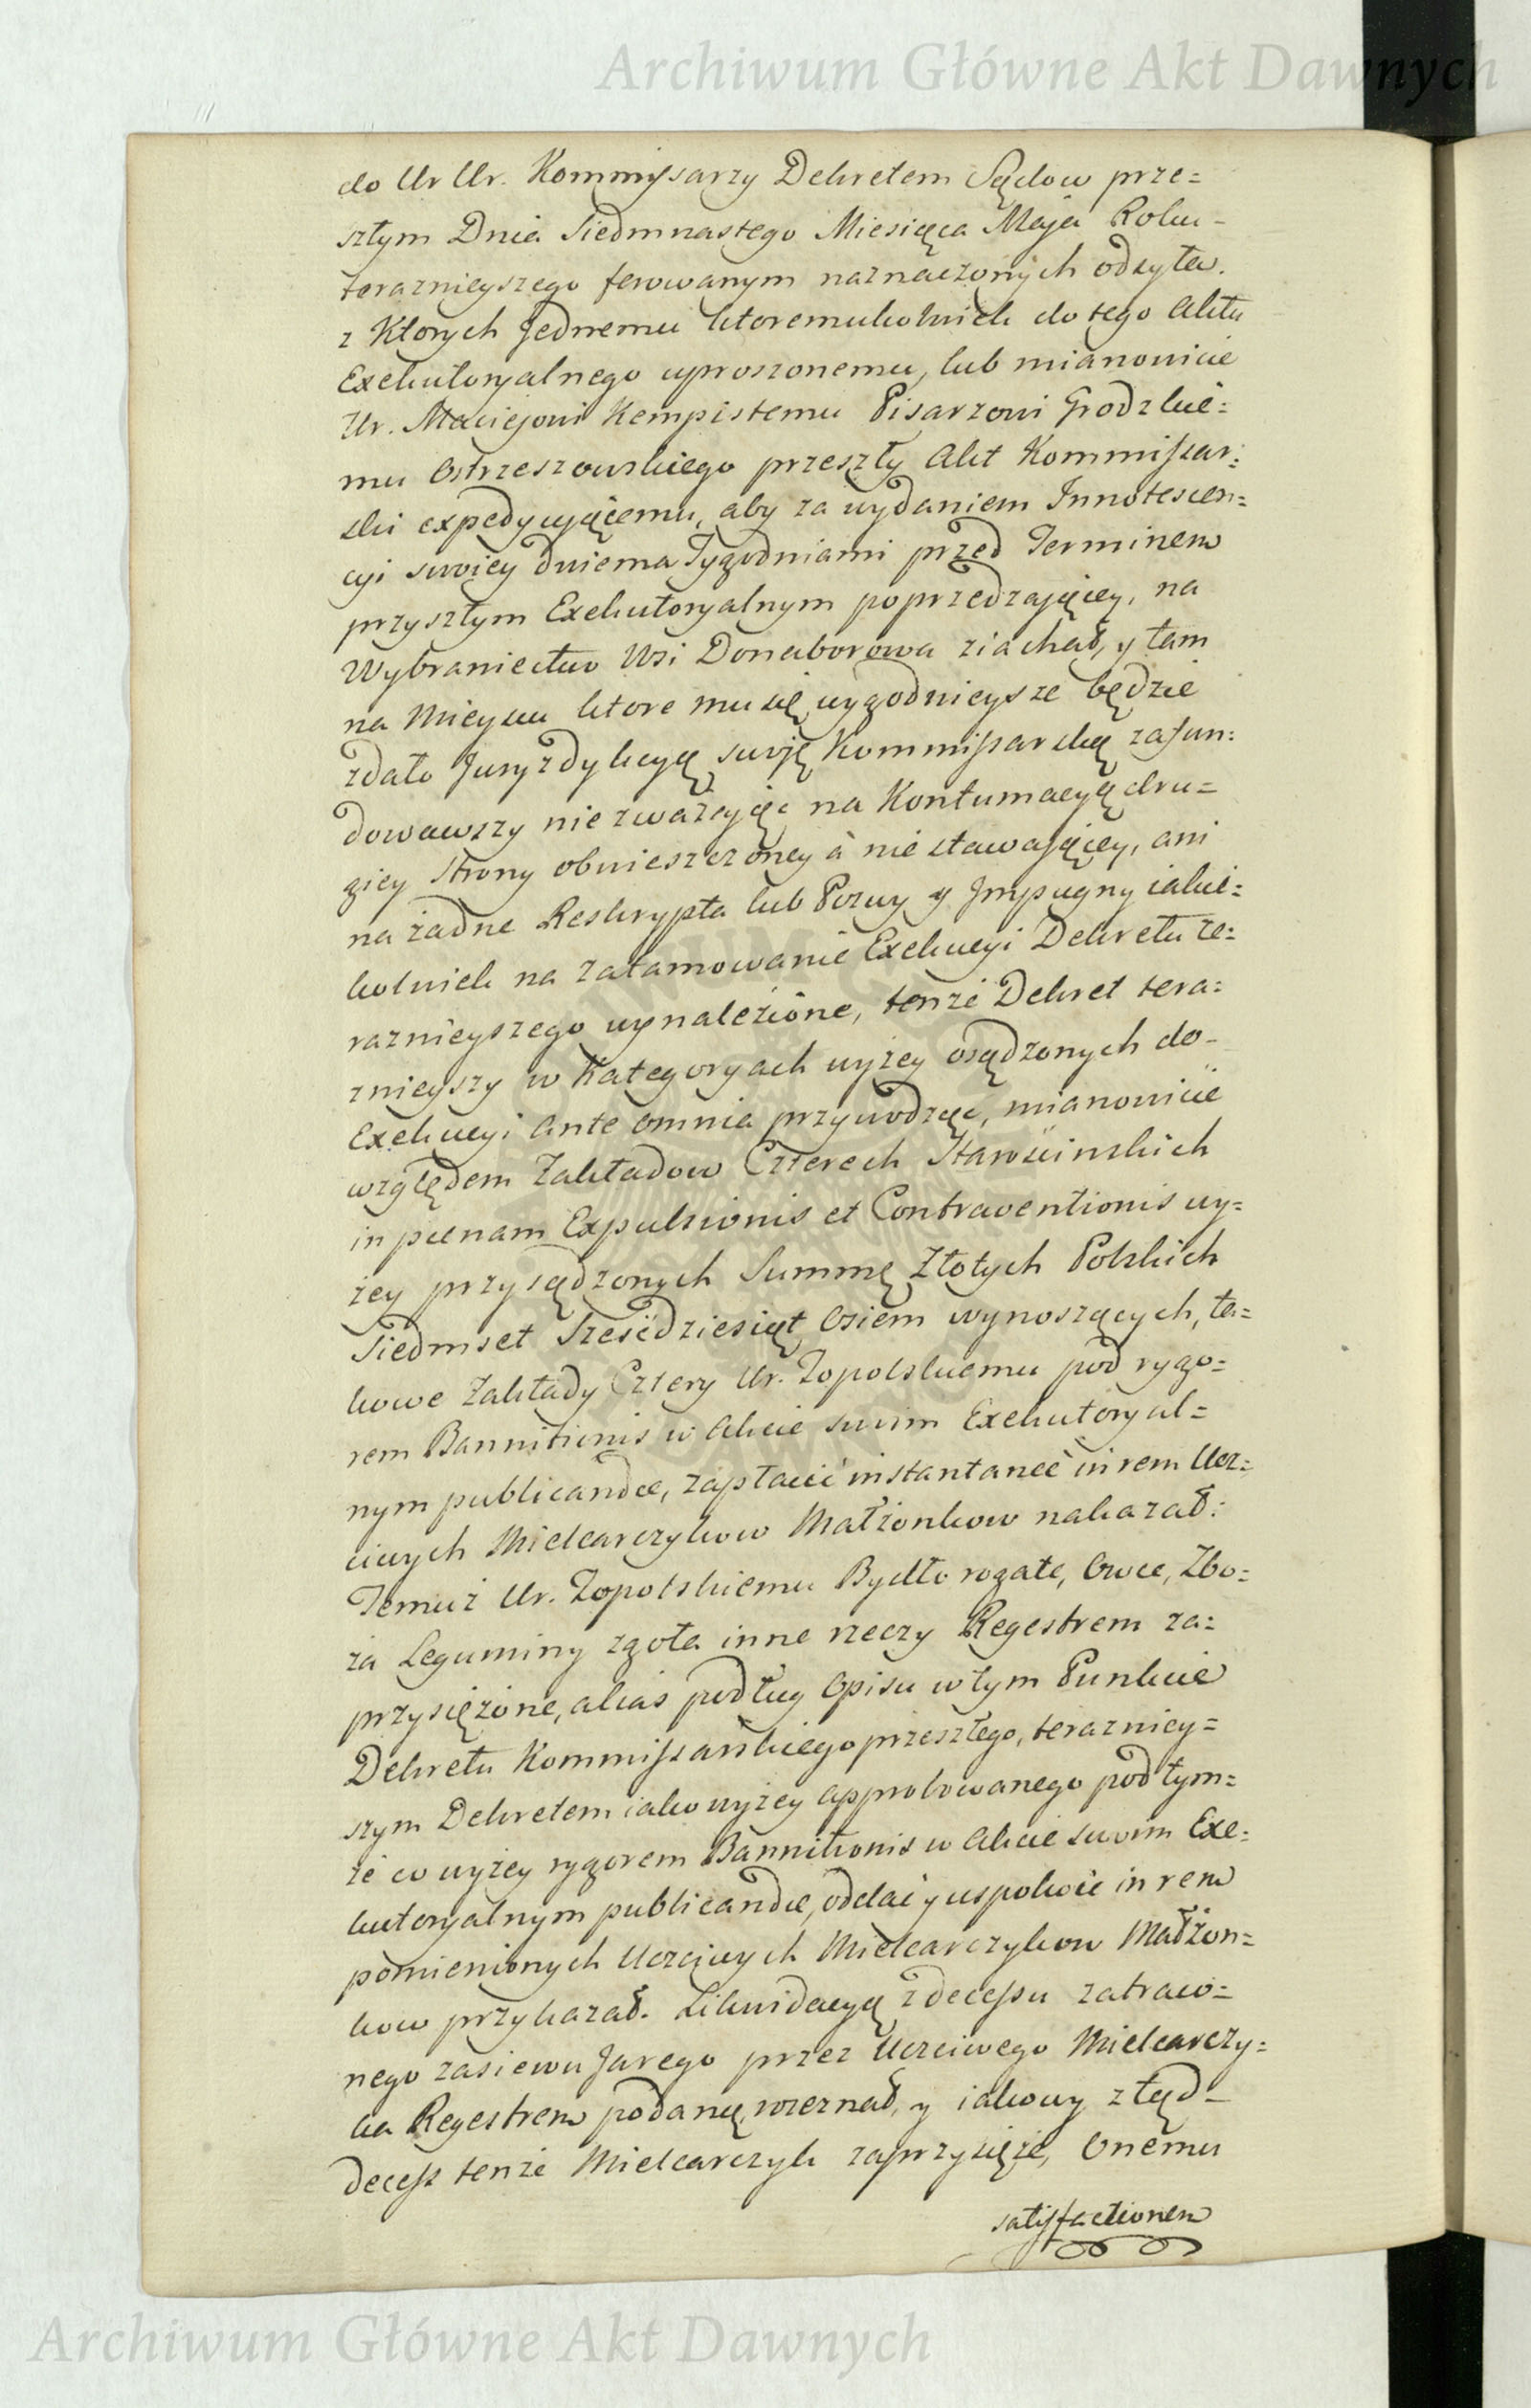 Archiwum Główne Akt Dawnych
do Ur Ur. Kommissarzy Dekretem Sądow prze=
szłym Dnia Siedmnastego Miesiąca Maja Roku-
teraznieyszego ferowanym naznaczonych odsyła.
z Ktorych Jednemu ktoremukolwiek do tego Aktu
Exekutoryalnego uproszonemu, lub mianowicie
Ur. Maciejowi Kempistemu Pisarzowi Grodzkie=
mu Ostrzeszowskiego przeszły Akt Kommissar=
ski expedyuiącemu, aby za wydaniem Innotescen=
cyi swoiey dwiema Tygodniami przed Terminem
przyszłym Exekutoryalnym poprzedzaiącey, na
Wybraniectwo Wsi Donaborowa ziachał, y tam
na Mieyscu ktore mu się wygodnieysze będzie
zdało Juryzdykcyą swoję Kommissarską zafun=
dowawszy nie zważaiąc na Kontumacyą dru=
giey Strony obwieszczoney à nie stawaiącey, ani
na żadne Reskrypta lub Pozwy y Jmpugny iakie=
kolwiek na zatamowanie Exekucyi Dekretu te=
raznieyszego wynaleźione, tenże Dekret tera=
znieyszy w Kategoryach wyżey osądzonych do-
Exekucyi ante omnia przywodząc, mianowicie
względem Zakładow Czterech Starościnskich
in pœnam Expulsionis et Contraventionis wy=
żey przysądzonych Summę Złotych Polskich
Siedmset Sześćdziesiąt Osiem wynoszących, ta=
kowe Zakłady Cztery Ur. Zopolskiemu pod rygo=
rem Bannitionis w Akcie swoim Exekutoryal=
nym publicandæ, zapłacić instantaneè in rem Ucz=
ciwych Mielcarczykow Małżonkow nakazał.
Temuż Ur. Zopolskiemu Bydło rogate, Owce, Zbo=
ża Leguminy zgoła inne rzeczy Regestrem za=
przysiężone, aliàs podług Opisu w tym Punkcie
Dekretu Kommissarskiego przeszłego, teraźniey=
szym Dekretem iako wyżey approbowanego pod tym=
że co wyżey rygorem Bannitionis w Akcie swoim Exe=
kutoryalnym publicandæ, oddać y uspokoić in rem
pomienionych Uczciwych Mielcarczykow Małżon=
kow przykazał. Likwidacyą z decessu zatraco=
nego zasiewu Jarego przez Uczciwego Mielcarczy=
ka Regestrem podaną, rozeznał, y iakowy ztąd-
decess tenże Mielcarczyk zaprzysięże, Onemu
satisfactionem
Archiwum Główne Akt Dawnych